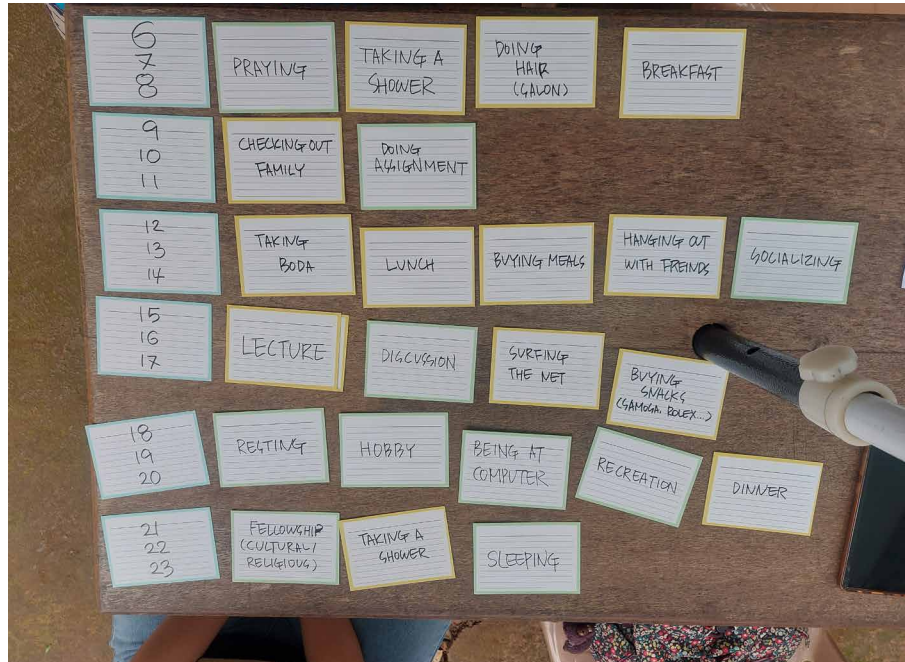 6
7
8
PRAYING
TAKING A
SHOWER
DOING
HAIR
(SALON)
BREAKFAST
9
10
11
CHECKING OUT
FAMILY
DOING
ASSIGNMENT
12
13
14
TAKING
BODA
LUNCH
BUYING MEALS
HANGING OUT
WITH FREINDS
SOCIALIZING
15
16
17
LECTURE
DISCUSSION
SURFING
THE NET
BUYING
SNACKS
(SAMOSA. ROLEX...)
18
19
20
RESTING
HOBBY
BEING AT
COMPUTER
RECREATION
DINNER
21
22
23
FELLOWSHIP
(CULTURAL/
RELIGIOUS)
TAKING A
SHOWER
SLEEPING